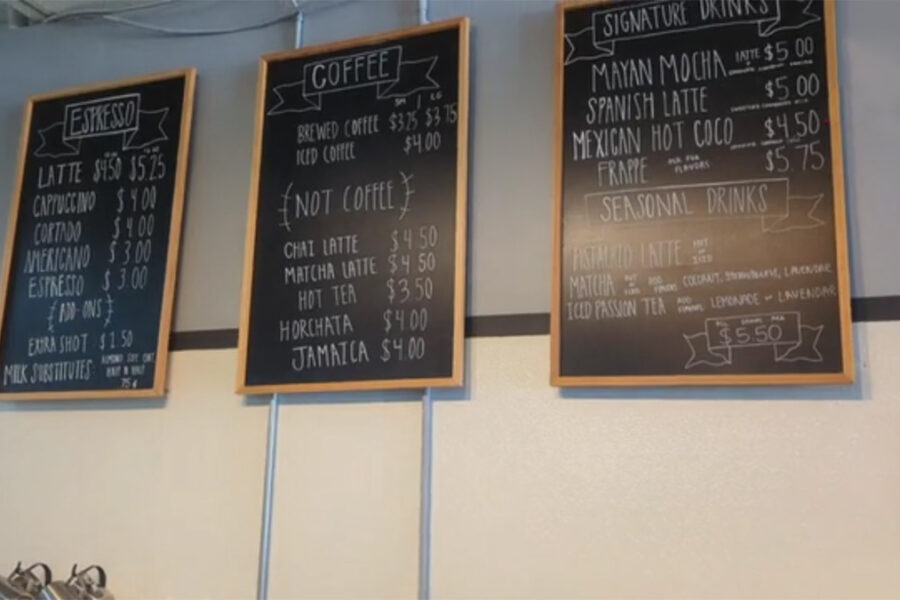 ESPRESSO
LATTE $4.50 $5.25
CAPPUCCINO $4.00
CORTADO $4.00
AMERICANO $3.00
ESPRESSO $3.00
{ADD-ONS}
EXTRA SHOT $1.50
MILK SUBSTITUTES: ALMOND SOY OAT
HALF N HALF
75¢
COFFEE
SM | LG
BREWED COFFEE $3.25 $3.75
ICED COFFEE $4.00
{NOT COFFEE}
CHAI LATTE $4.50
MATCHA LATTE $4.50
HOT TEA $3.50
HORCHATA $4.00
JAMAICA $4.00
SIGNATURE DRINKS
MAYAN MOCHA LATTE $5.00
SPANISH LATTE $5.00
MEXICAN HOT COCO $4.50
FRAPPE ASK FOR FLAVORS $5.75
SEASONAL DRINKS
PISTACHIO LATTE HOT or ICED
MATCHA HOT or ICED ADD FLAVORS COCONUT, STRAWBERRY, LAVENDAR
ICED PASSION TEA ADD FLAVORS LEMONADE or LAVENDAR
$5.50